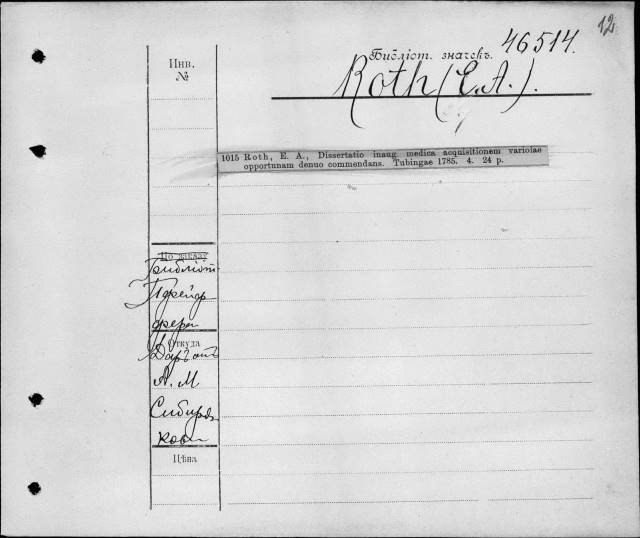 12
46514.
Инв.
№
Библіот. значекъ.
Roth (E. A.).
1015 Roth, E. A., Dissertatio inaug. medica acquisitionem variolae
opportunam denuo commendans. Tubingae 1785. 4. 24 p.
По заказу
Библіот
Пфейф
фера
Откуда
Даръ отъ
А. М
Сибиря
кова
Цѣна